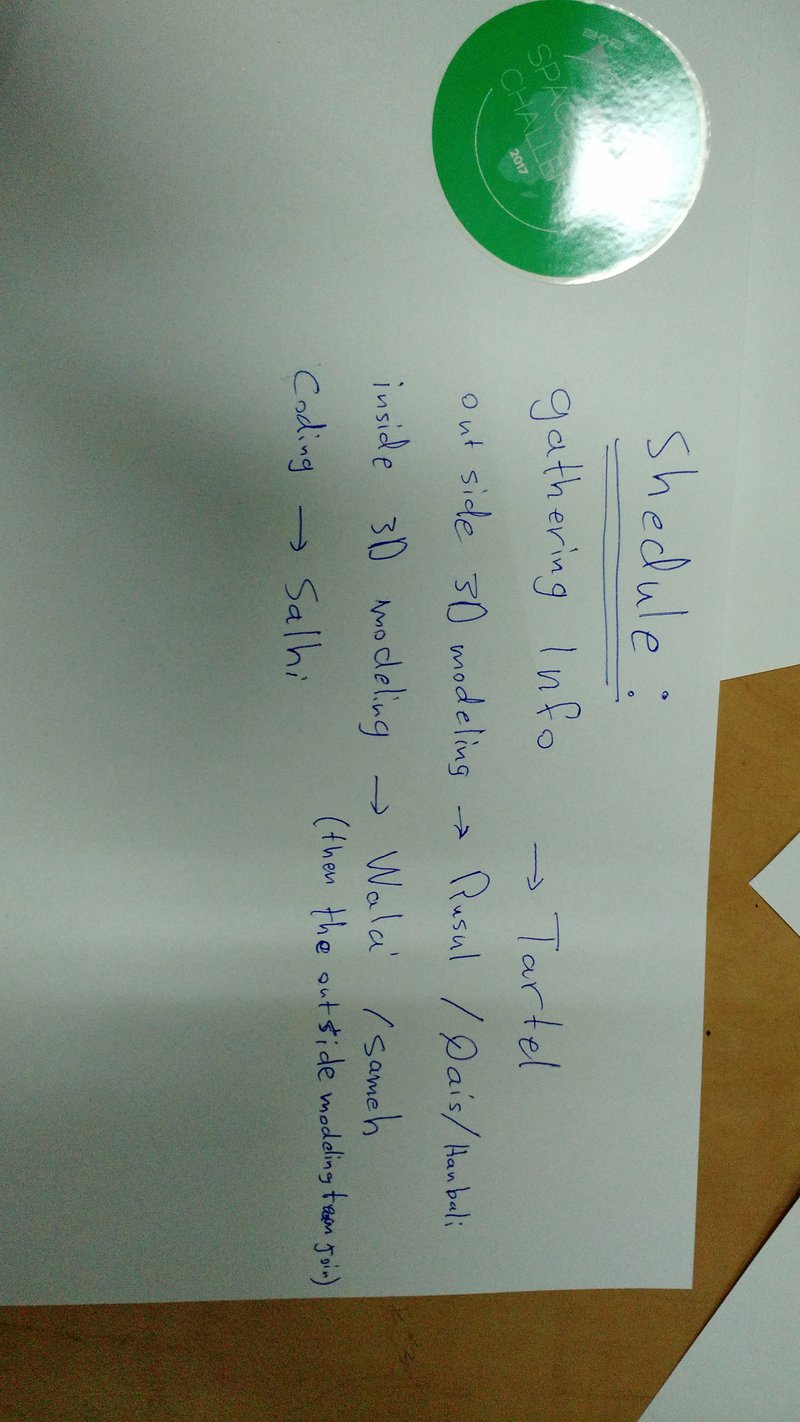 SPAC
CHALLEN
2017
Shedule :
gathering Info → Tartel
out side 3D modeling → Rusul / Qais / Hanbali
inside 3D modeling → Wala' / Sameh
(then the out side modeling team join)
Coding → Salhi